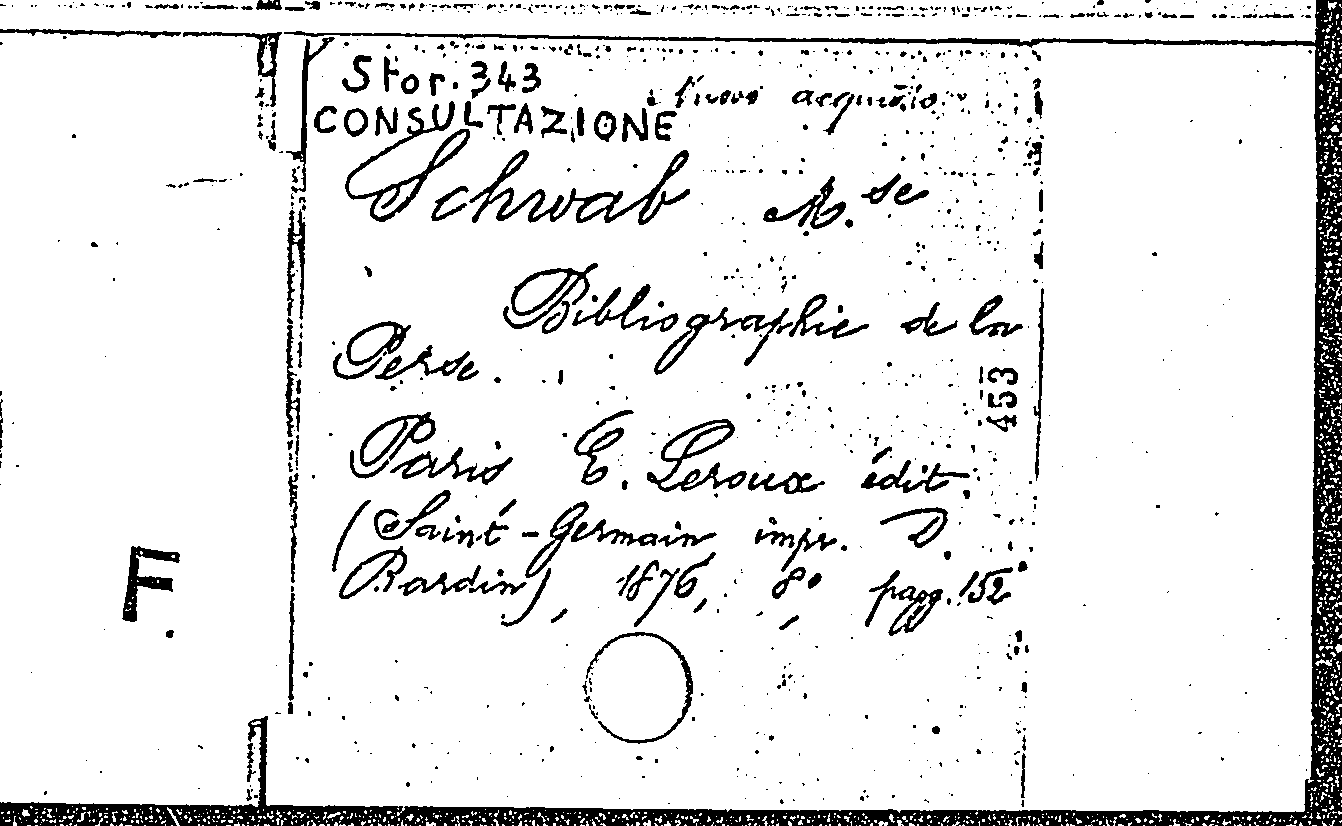 Stor. 343
nuovo acquisto
CONSULTAZIONE
Schwab M.se
Bibliographie de la
Perse.
453
Paris E. Leroux édit.
(Saint-Germain impr. D.
Bardin), 1876, 8° pagg. 152
F